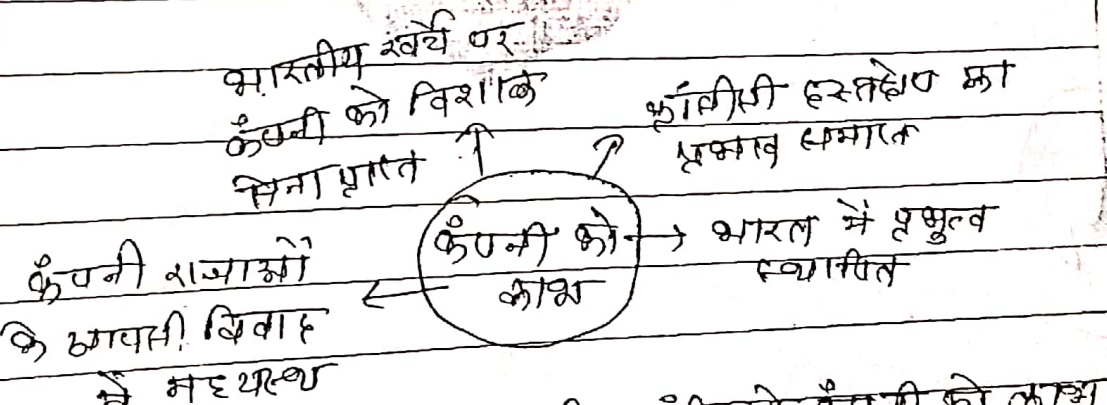 भारतीय खर्चे पर
कंपनी को विशाल
सेना प्राप्त
फ्रांसीसी हस्तक्षेप का
प्रभाव समाप्त
कंपनी को
लाभ
भारत में प्रभुत्व
स्थापित
कंपनी राजाओं
के आपसी विवाद
में मध्यस्थ
कंपनी को लाभ